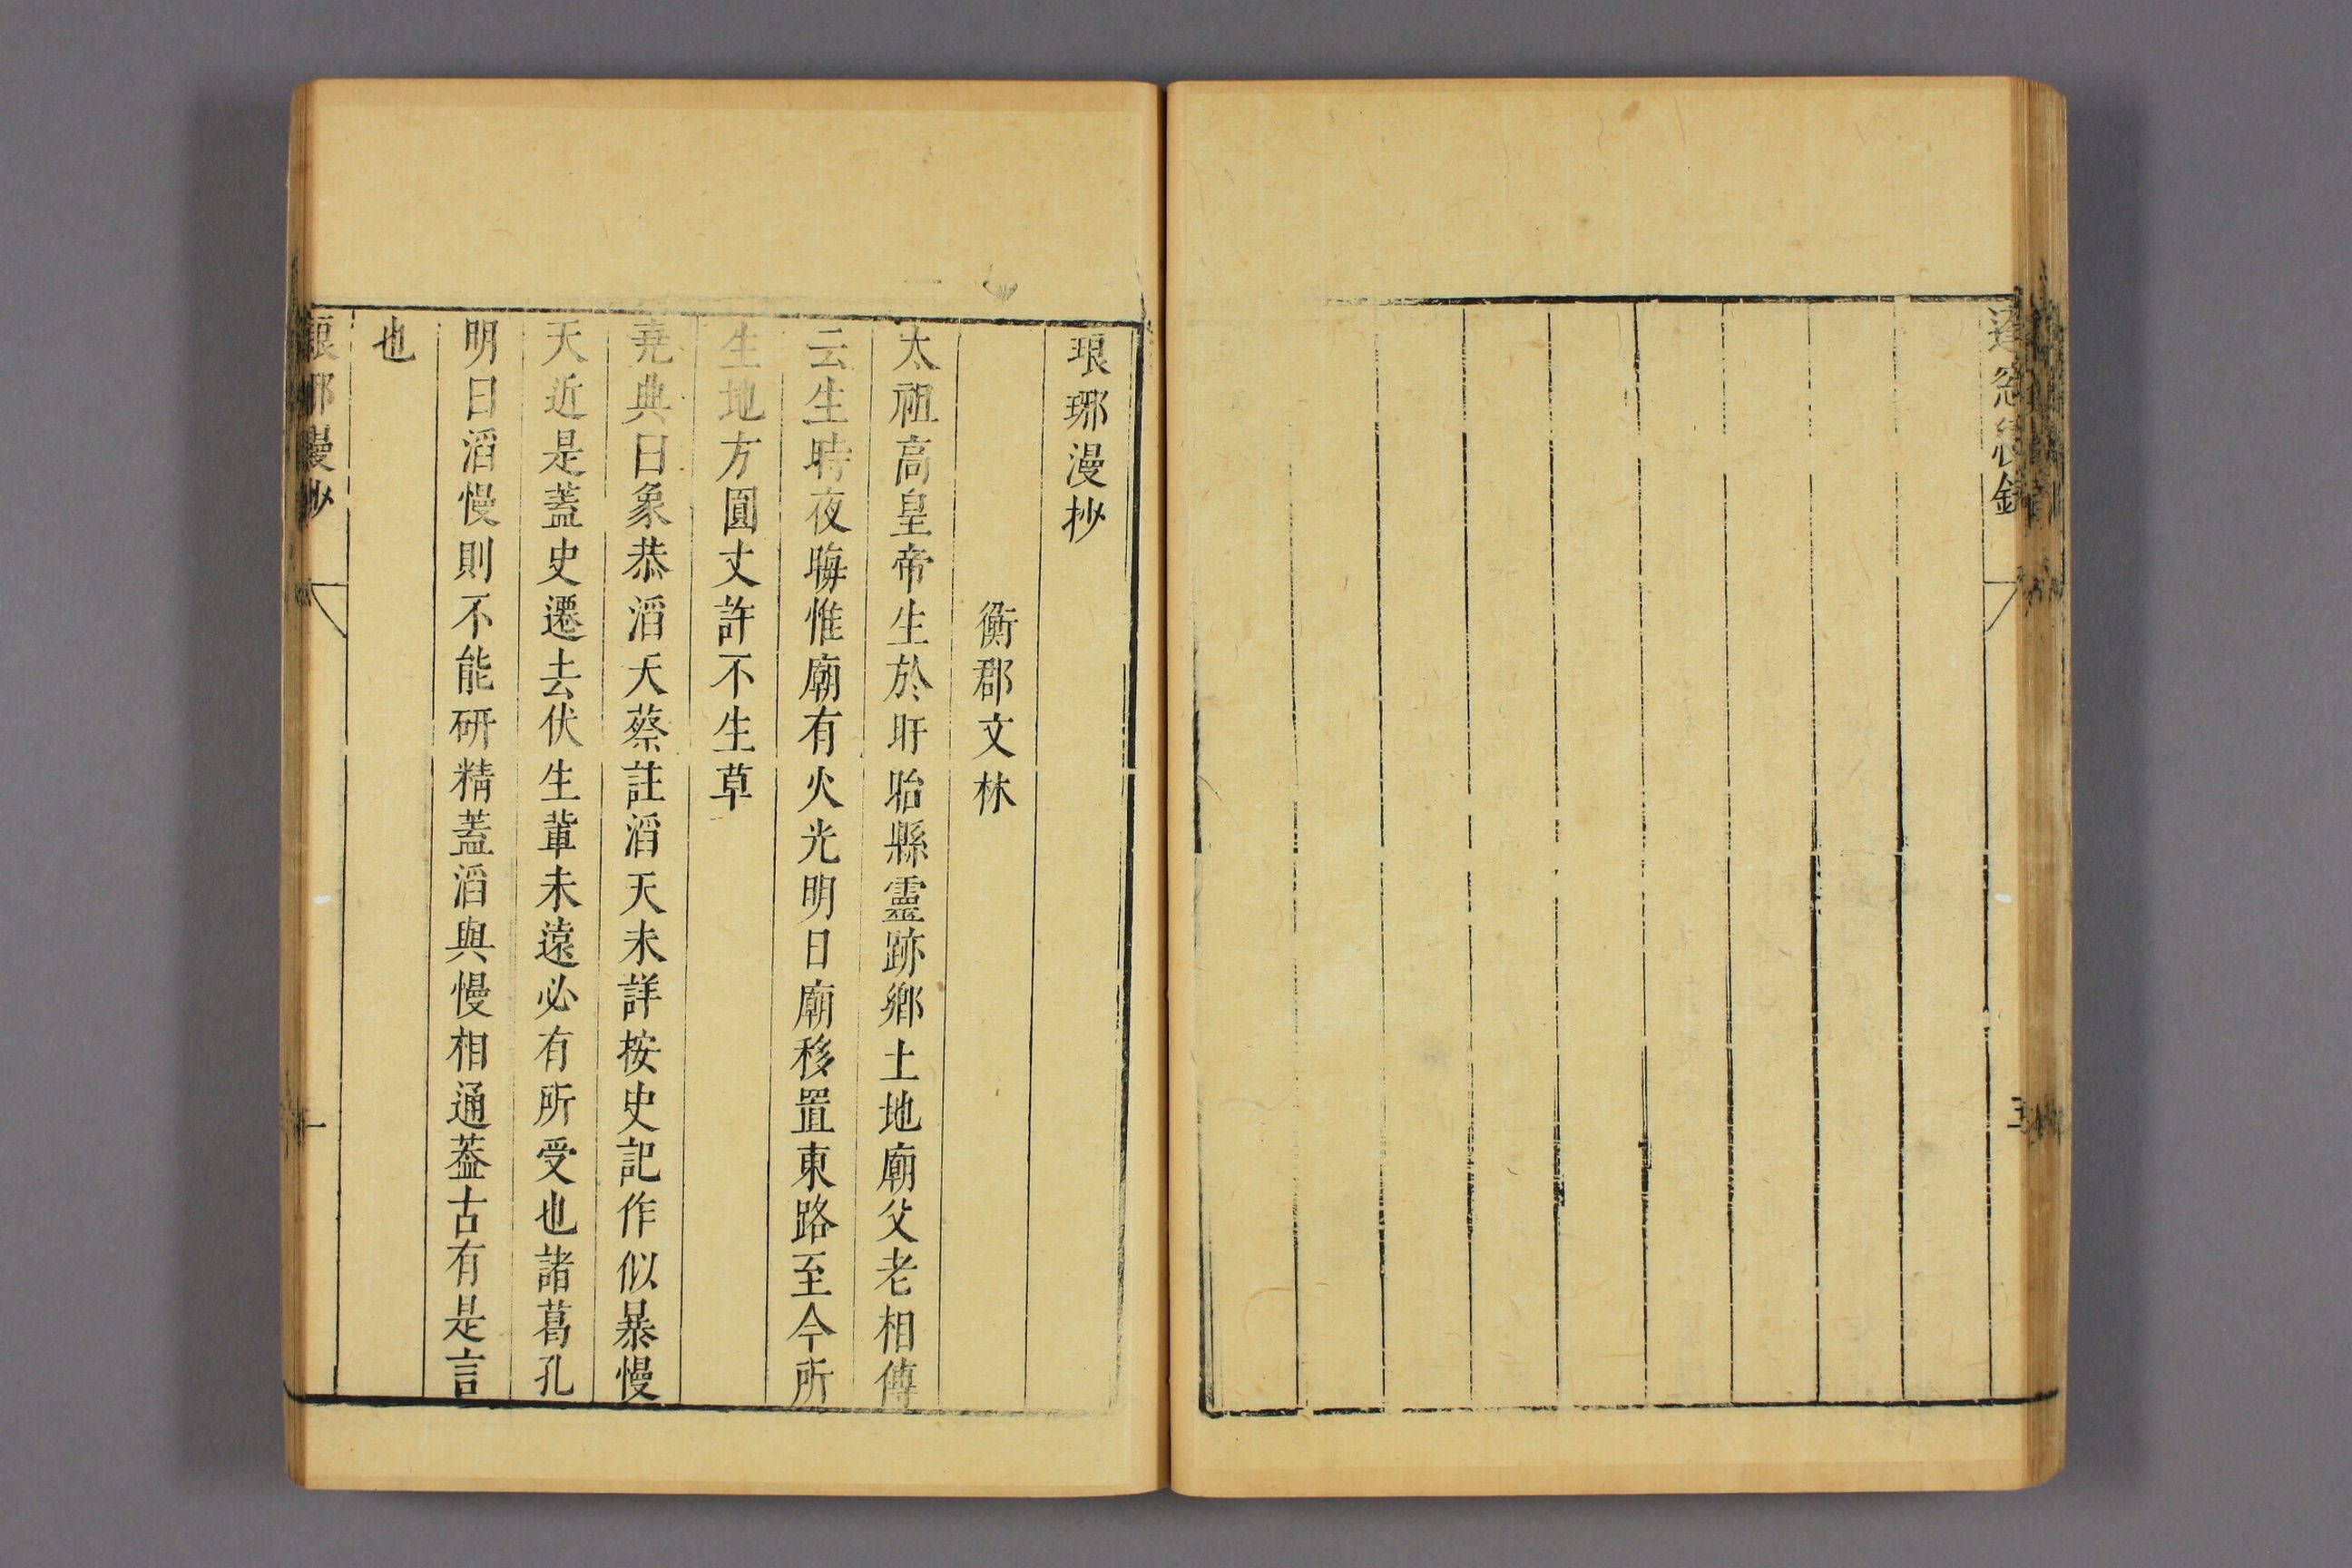 琅琊漫抄
衡郡文林
太祖高皇帝生於盱眙縣靈跡鄉土地廟父老相傳
云生時夜晦惟廟有火光明日廟移置東路至今所
生地方圓丈許不生草
堯典曰象恭滔天蔡註滔天未詳按史記作似暴慢
天近是蓋史遷去伏生輩未遠必有所受也諸葛孔
明曰滔慢則不能研精蓋滔與慢相通葢古有是言
也
琅琊漫抄
一